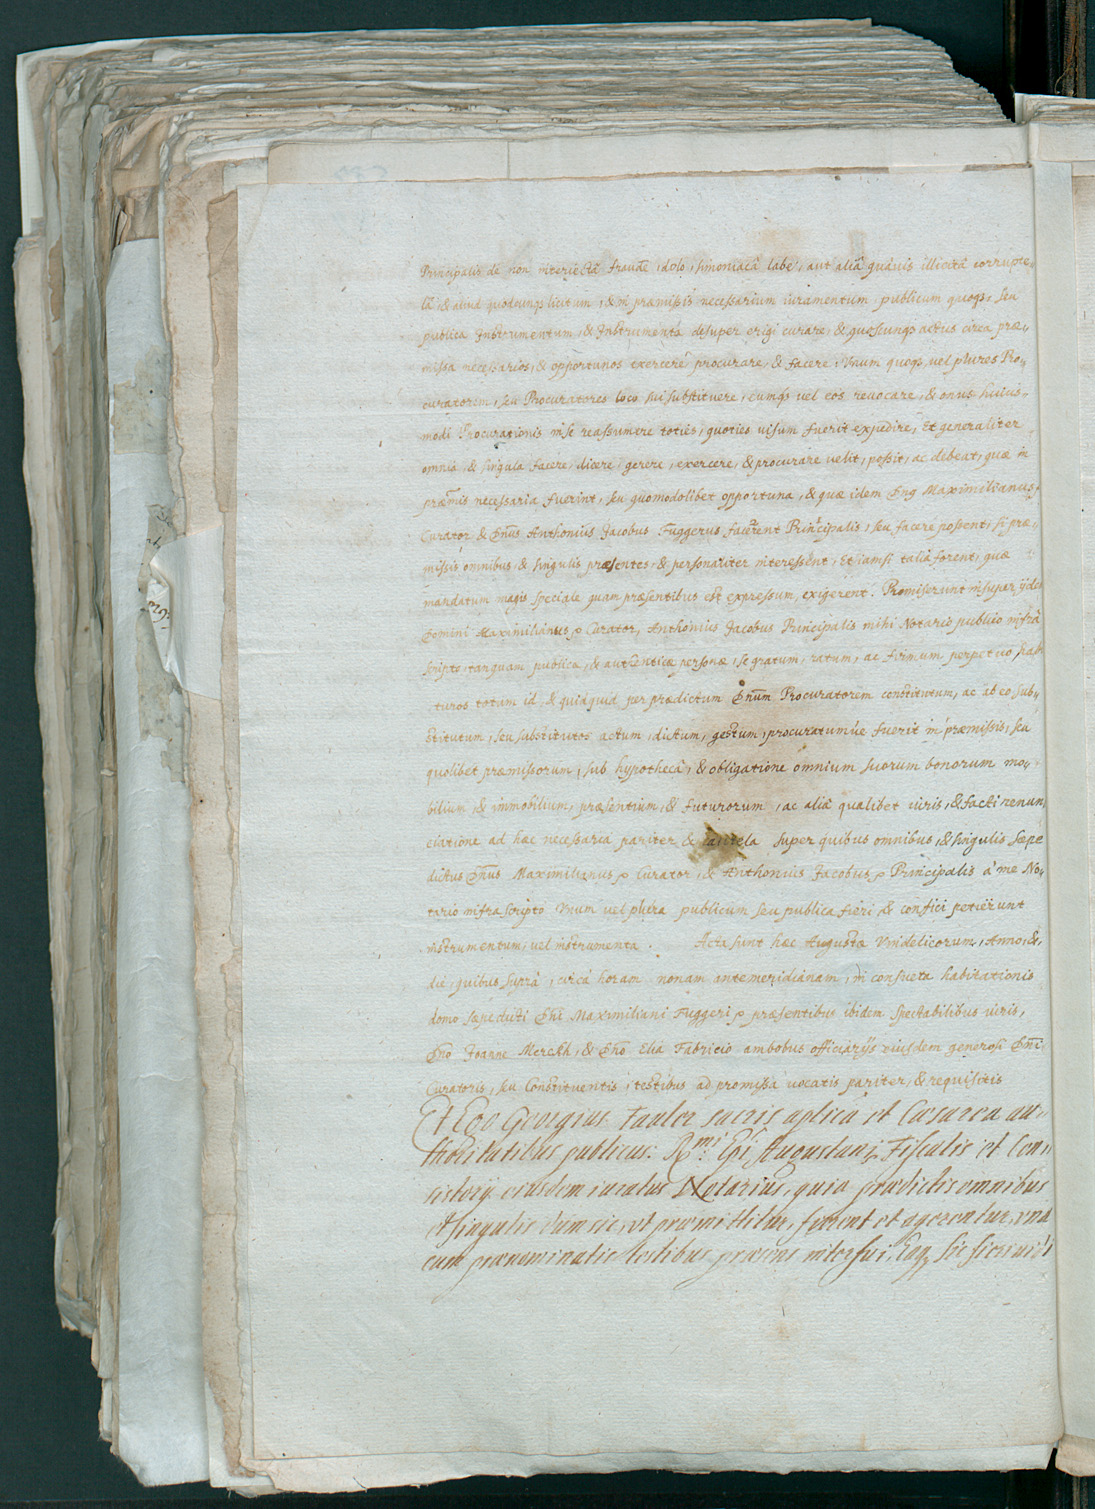 Principalis de non interiectâ fraude, dolo, simoniacâ labe, aut aliâ quâuis illicitâ corrupte„
lâ, & aliud quodcunqs licitum, & in præmissis necessarium iuramentum publicum quoqs, seu
publica Instrumentum, & Instrumenta desuper erigi curare, & quoscunqs actus circa præ„
missa necessarios, & opportunos exercere procurare, & facere, Vnum quoqs, vel plures Pro„
curatorem, seu Procuratores loco sui substituere, eumqs vel eos reuocare, & onus huius„
modi Procurationis in se reassumere toties, quoties uisum fuerit expedire, Et generaliter
omnia, & singula facere, dicere, gerere, exercere, & procurare uelit, possit, ac debeat, quæ in
præmis necessaria fuerint, seu quomodolibet opportuna, & quæ idem Dns Maximilianus,
Curator & Dnus Anthonius Jacobus Fuggerus facerent Principalis, seu facere possent, si præ„
missis omnibus, & singulis præsentes, & personaliter interessent, Etiamsi talia forent, quæ
mandatum magis speciale quam præsentibus est expressum, exigerent. Promiserunt insuper ijdem
Domini Maximilianus p Curator, Anthonius Jacobus Principalis mihi Notario publico infrà
scripto, tanquam publicæ, & autenticæ personæ, se gratum, ratum, ac firmum perpetuo habi
turos totum id & quidquid per prædictum Dnum Procuratorem constitutum, ac ab eo, sub„
stitutum, seu substitutos actum, dictum, gestum, procuratumúe fuerit in præmissis, seu
quolibet præmissorum, sub hypothecâ, & obligatione omnium suorum bonorum mo„
bilium, & immobilium, præsentium, & futurorum, ac aliâ qualibet iuris, & facti renun„
ciatione ad hæc necessaria pariter & cautela super quibus omnibus, & singulis sæpe
dictus Dnus Maximilianus p Curator, & Anthonius Jacobus p Principalis à me No„
tario infra scripto Vnum vel plura publicum seu publica fieri & confici petierunt
instrumentum, vel instrumenta. Acta sunt hæc Augustæ Vindelicorum, Anno, &
die, quibus suprà, circà horam nonam antemeridianam, in consueta habitationis
domo sæpedicti Dni Maximiliani Fuggeri p præsentibus ibidem spectabilibus uiris,
Dno Joanne Merckh, & Dno Elia Fabricio ambobus officiarijs eiusdem generosi Dni
Curatoris, seu Constituentis, testibus ad promissa uocatis pariter, & requisitis
Et Ego Georgius Fauler sacris aplica et Cæsarea au„
thoritatibus publicus: Rmi Epi Augustani Fiscalis et Con„
sistorij eiusdem iuratus Notarius, quia prædictis omnibus
et singulis dum sic, ut præmittitur, fierent et agerentur, una
cum prænominatis testibus præsens interfui, Eaq. sic fieri uidi